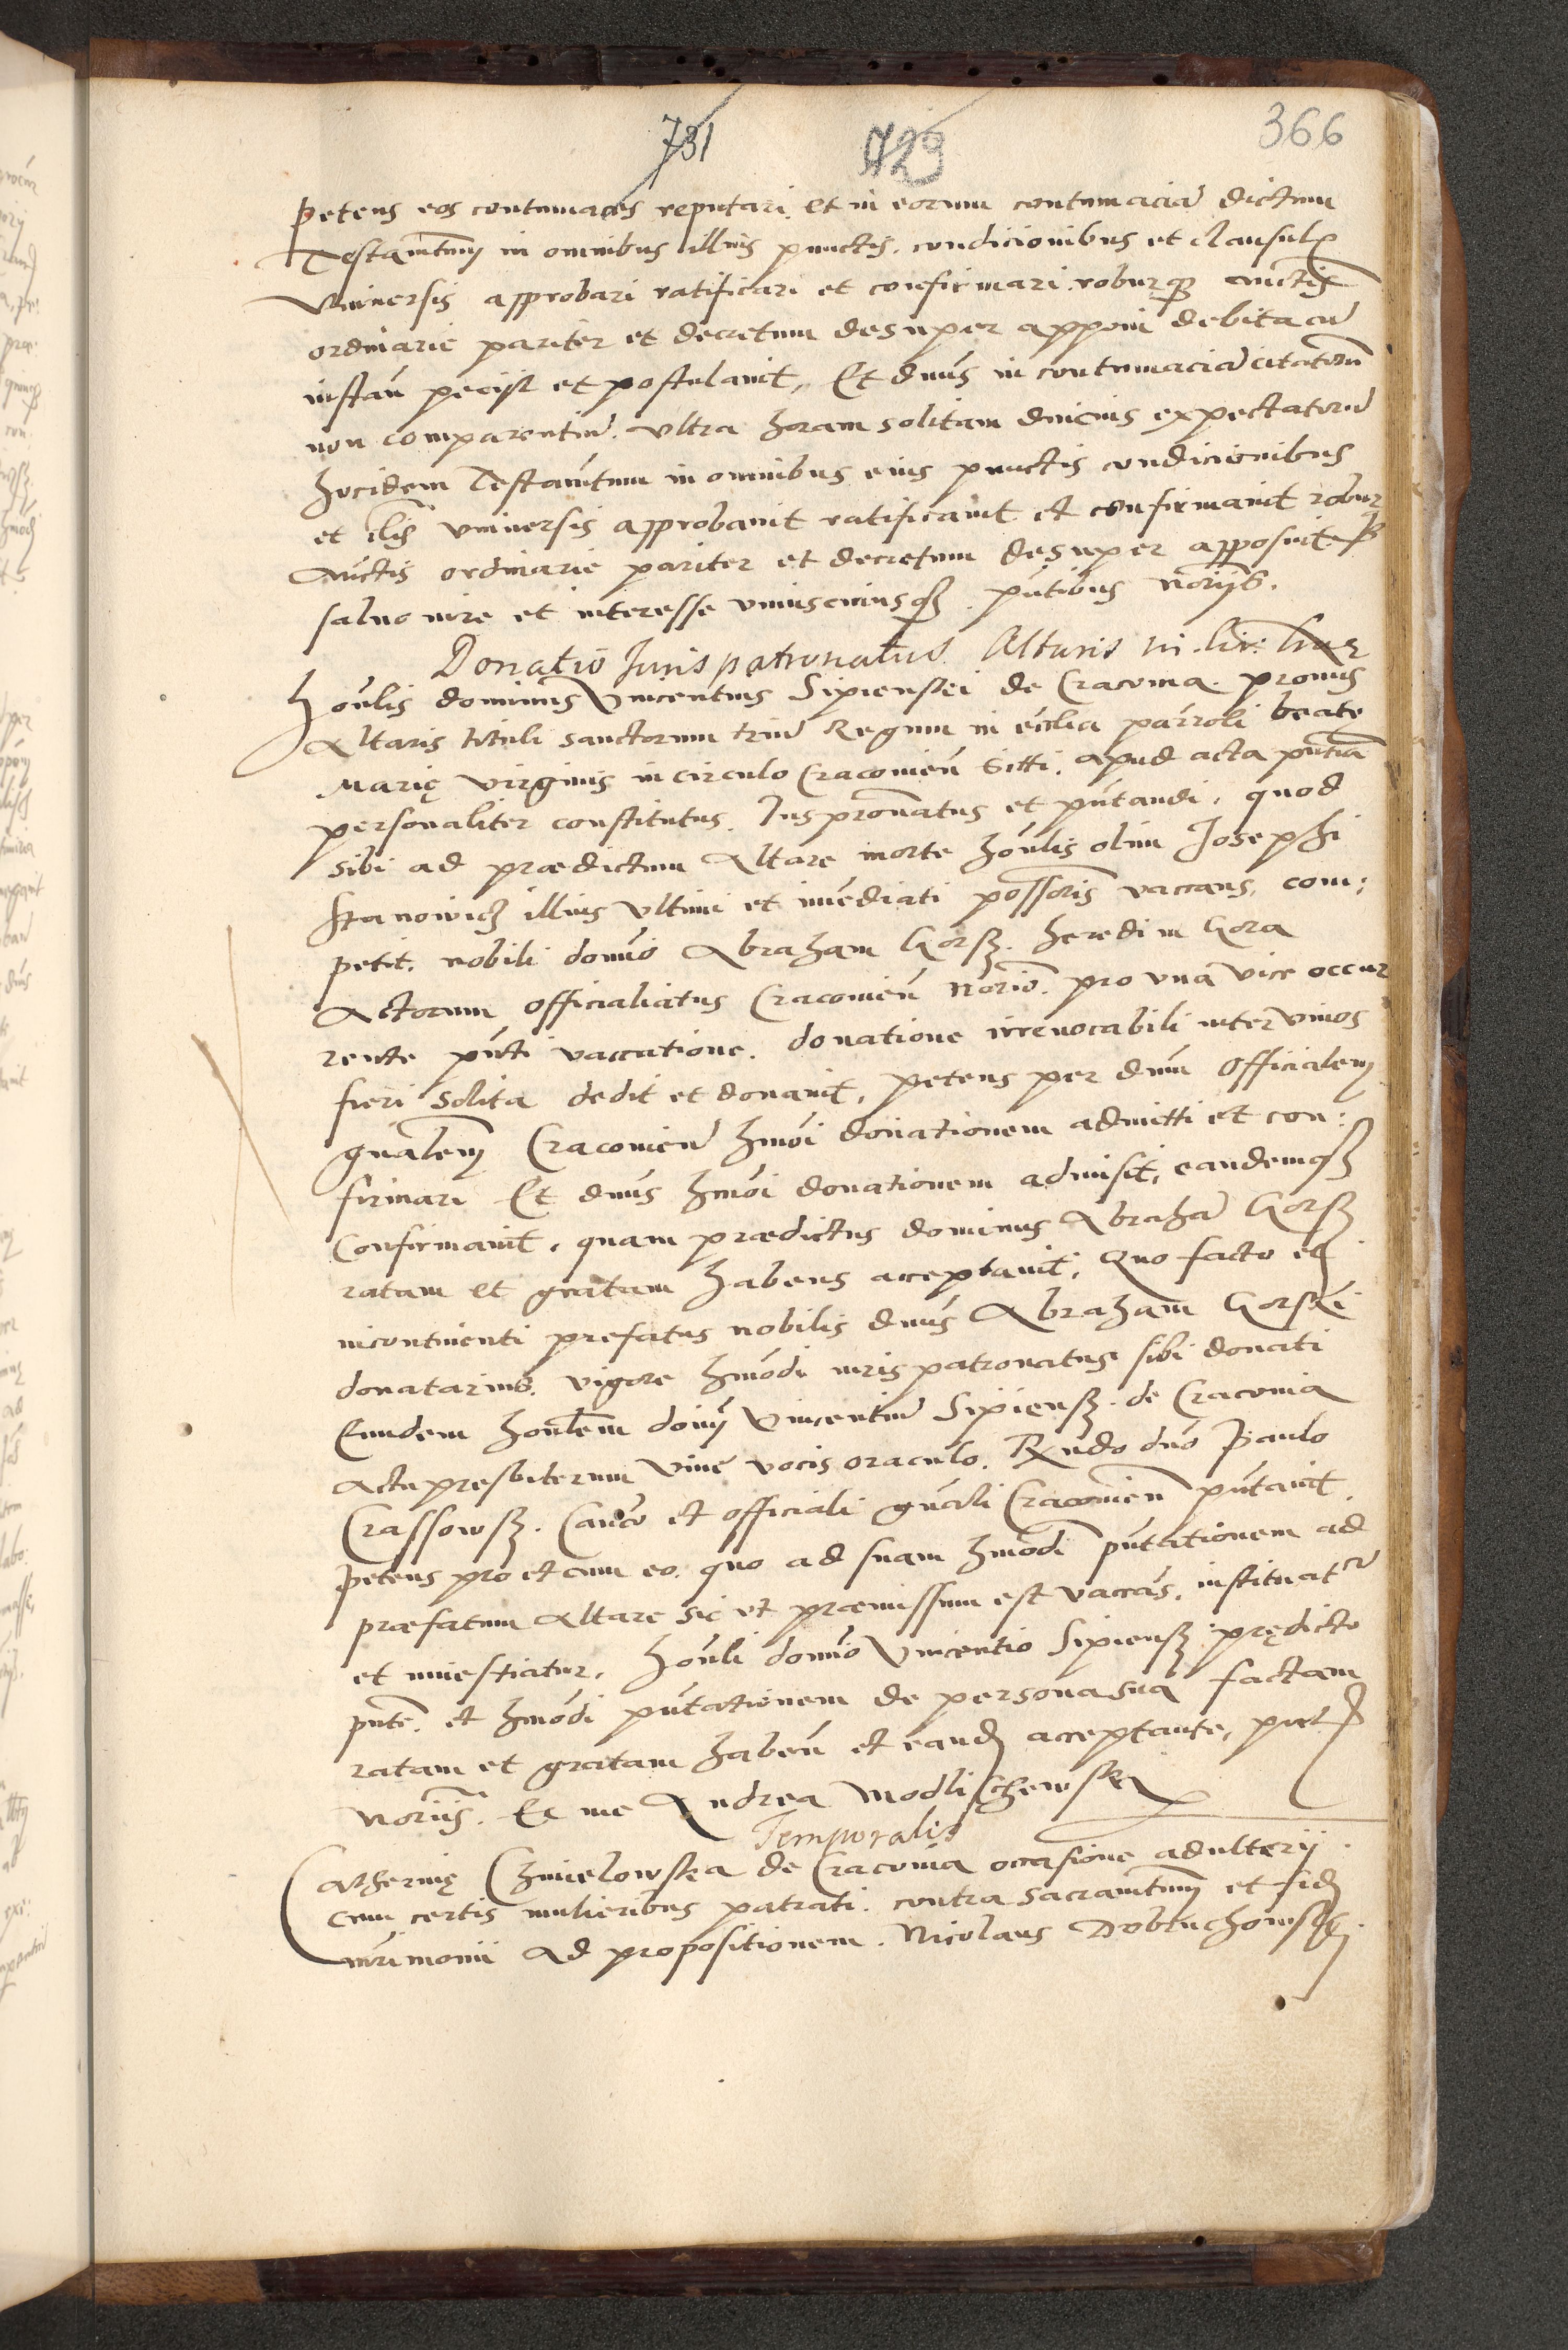 731 729 366
petens eos contumaces reputari et in eorum contumaciã dictum
Testamtum in omnibus illius punctis, condicionibus et clausul
Vniversis approbari ratificari et confirmari roburq auctis
ordinarie pariter et decretum desuper apponi debita cũ
instañ peciit et postulavit, Et dnus in contumaciã citatorũ
non comparentiũ, vltra horam solitam diucius expectatorũ
huiusdem Testamtum in omnibus eius punctis condicionibus
et clis vniversis approbavit ratificavit et confirmavit robur
auctis ordinarie pariter et decretum desuper apposuit
salvo iure et interesse vniuscuiusq. pntibus noriis.
Donatio Jurispatronatus Altaris in
Honlis dominus Vincentius Sipienski de Cracovia pronus
Altaris tituli sanctorum triũ Regum in ecclia parroli beate
Marię virginis in circulo Cracovieñ sitti, apud acta pntia
personaliter constitutus, Juspronatus et pntandi, quod
sibi ad praedictum Altare morte honlis olim Josephi
Stanowicz illius vltimi et immediati possoris vaccans, com:
petit, nobili domno Abraham Gorsk. heredi in Gora
Actorum officialiatus Cracovieñ norio. pro vna vice occur
rente pnti vaccatione, donatione irrevocabili inter vivos
fieri solita dedit et donavit, petens per dnum Officialem
gnalem Cracovieñ hmoi donationem admitti et con:
firmari Et dnus hmoi donationem admisit, eandemq
Confirmavit, quam praedictus dominus Abrahã Gorsk
ratam et gratam habens acceptavit, Quo facto et
incontinenti prefatus nobilis dnus Abraham Gorski
donatarius, vigore hmodi iuris patronatus sibi donati
Eundem honlem domnum Vincentiũ Sipiensk. de Cracovia
actu presbiterum vive vocis oraculo, Rndo dno Paulo
Crassowsk. Canco et officiali gnali Cracovieñ pntavit,
petens pro et cum eo, quo ad suam hmodi pntationem ad
praefatum altare sic ut praemissum est vaccãs, instituatr
et investiatur, honli domno Vincentio Sipiensk prędicto
pnte, et hmodi pntationem de persona sua factam
ratam et gratam habeñ et eand acceptante, pntibus
noriis. Et me Andrea Modlischewski
Temporalis
Catherinę Chmielowska de Cracovia occasione adulterij
cum certis mulieribus patrati, contra sacramtum et fid
mrimonii ad propositionem. Nicolaus Dobruchowski.